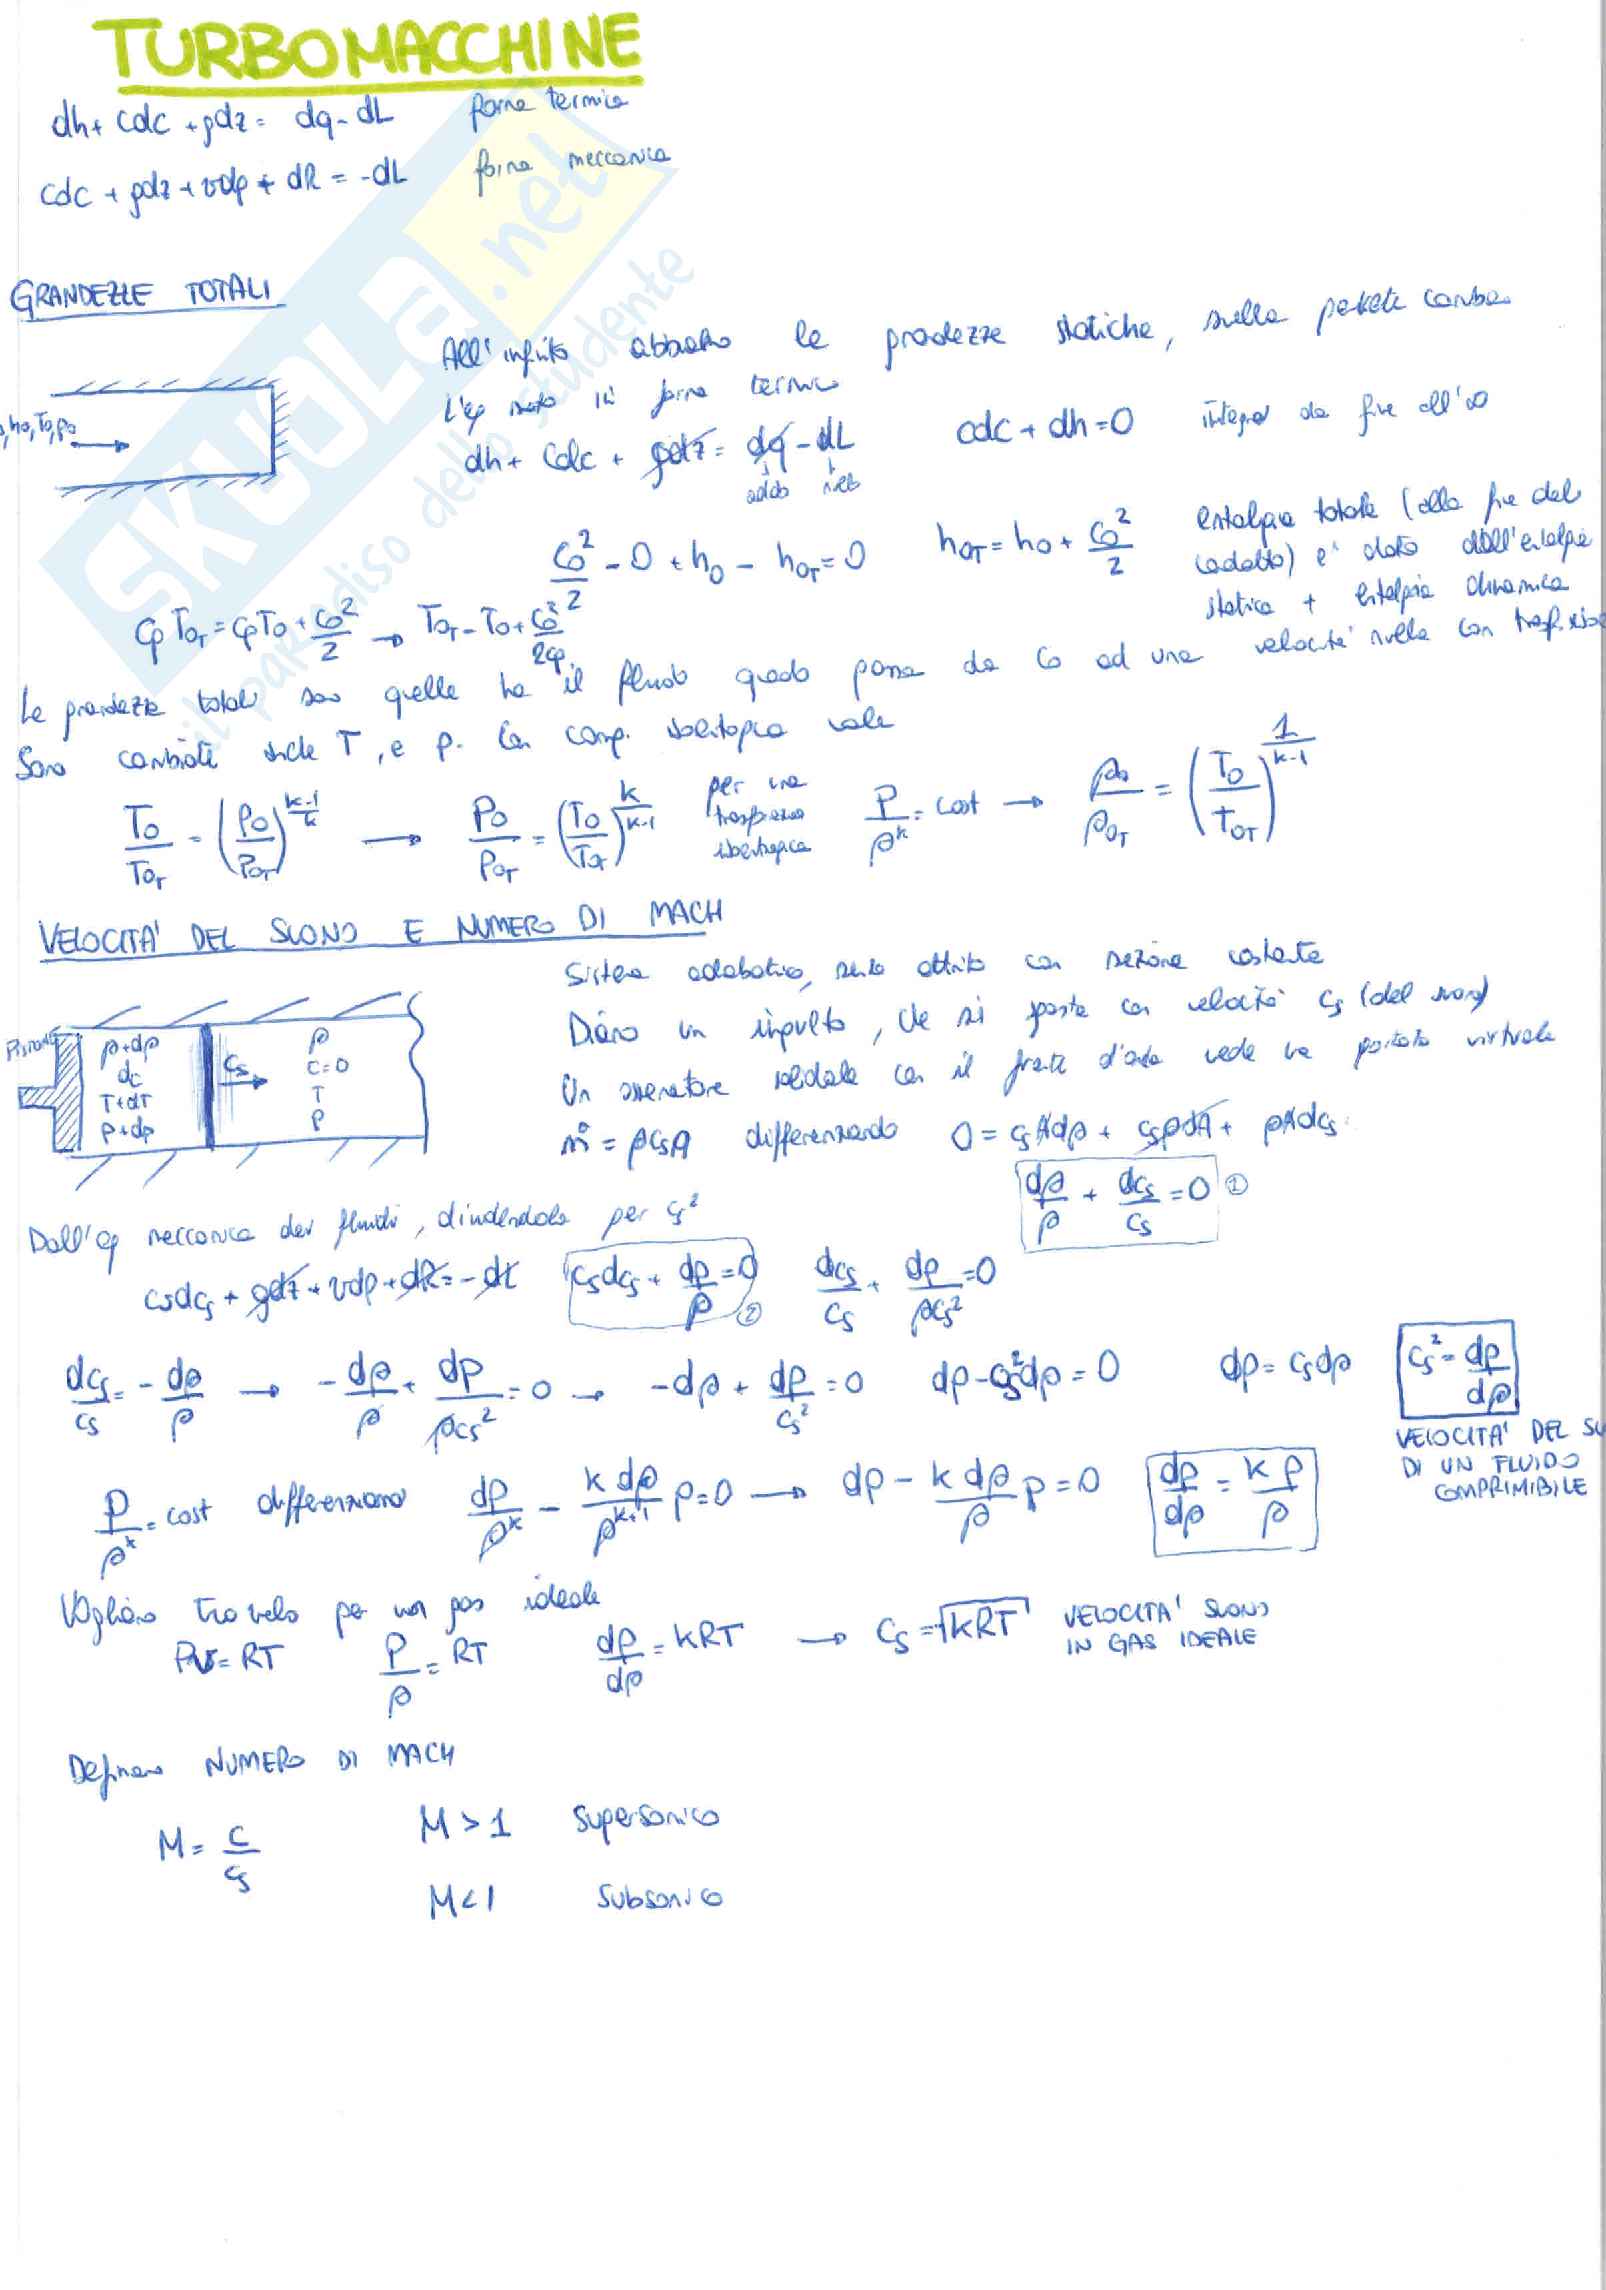 TURBOMACCHINE
dh + cdc + gdz = dq - dL forma termica
cdc + gdz + vdp + dR = -dL forma meccanica
SKUOLA.net
il paradiso dello studente
GRANDEZZE TOTALI
All'infinito abbiamo le grandezze statiche, sulla parete cambiano
L'eq moto in forma termica
h0, T0, p0
dh + cdc + gdz = dq - dL cdc + dh = 0 integro da fine all'∞
adiab
c0²/2 - 0 + h0 - h0T = 0 h0T = h0 + c0²/2 entalpia totale (alla fine del
condotto) e' data dall'entalpia
statica + entalpia dinamica
cp T0T = cp T0 + c0²/2 → T0T = T0 + c0²/2cp
Le grandezze totali sono quelle ha il fluido quando passa da c0 ad una velocità nulla con trasf.
Sono cambiate anche T, e p. Con comp. isentropica vale
T0/T0T = (p0/p0T)^(k-1)/k → p0/p0T = (T0/T0T)^k/(k-1) per una trasformazione isentropica P/ρ^k = cost → ρ0/ρ0T = (T0/T0T)^1/(k-1)
VELOCITA' DEL SUONO E NUMERO DI MACH
Sistema adiabatico, senza attrito con sezione costante
Diamo un impulso, che si sposta con velocità cs (del suono)
Un osservatore solidale con il fronte d'onda vede una portata virtuale
PISTONE
ρ+dρ
dc
T+dT
p+dp
cs
ρ
c=0
T
p
ṁ = ρcsA differenziando 0 = csAdρ + csρdA + ρAdcs
dρ/ρ + dcs/cs = 0 ①
Dall'eq meccanica dei fluidi, dividendola per cs²
csdcs + gdz + vdp + dR = -dL csdcs + dp/ρ = 0 ② dcs/cs + dp/ρcs² = 0
dcs/cs = - dρ/ρ → - dρ/ρ + dp/ρcs² = 0 → -dρ + dp/cs² = 0 dp - cs²dρ = 0 dp = csdρ cs² = dp/dρ
VELOCITA' DEL SU
DI UN FLUIDO
COMPRIMIBILE
P/ρ^k = cost differenziando dp/ρ^k - k dρ/ρ^(k+1) p = 0 → dp - k dρ/ρ p = 0 dp/dρ = k p/ρ
Vogliamo trovarlo per un gas ideale
Pv = RT P/ρ = RT dp/dρ = kRT → cs = √kRT VELOCITA' SUONO
IN GAS IDEALE
Definiamo NUMERO DI MACH
M = c/cs M > 1 Supersonico
M < 1 Subsonico